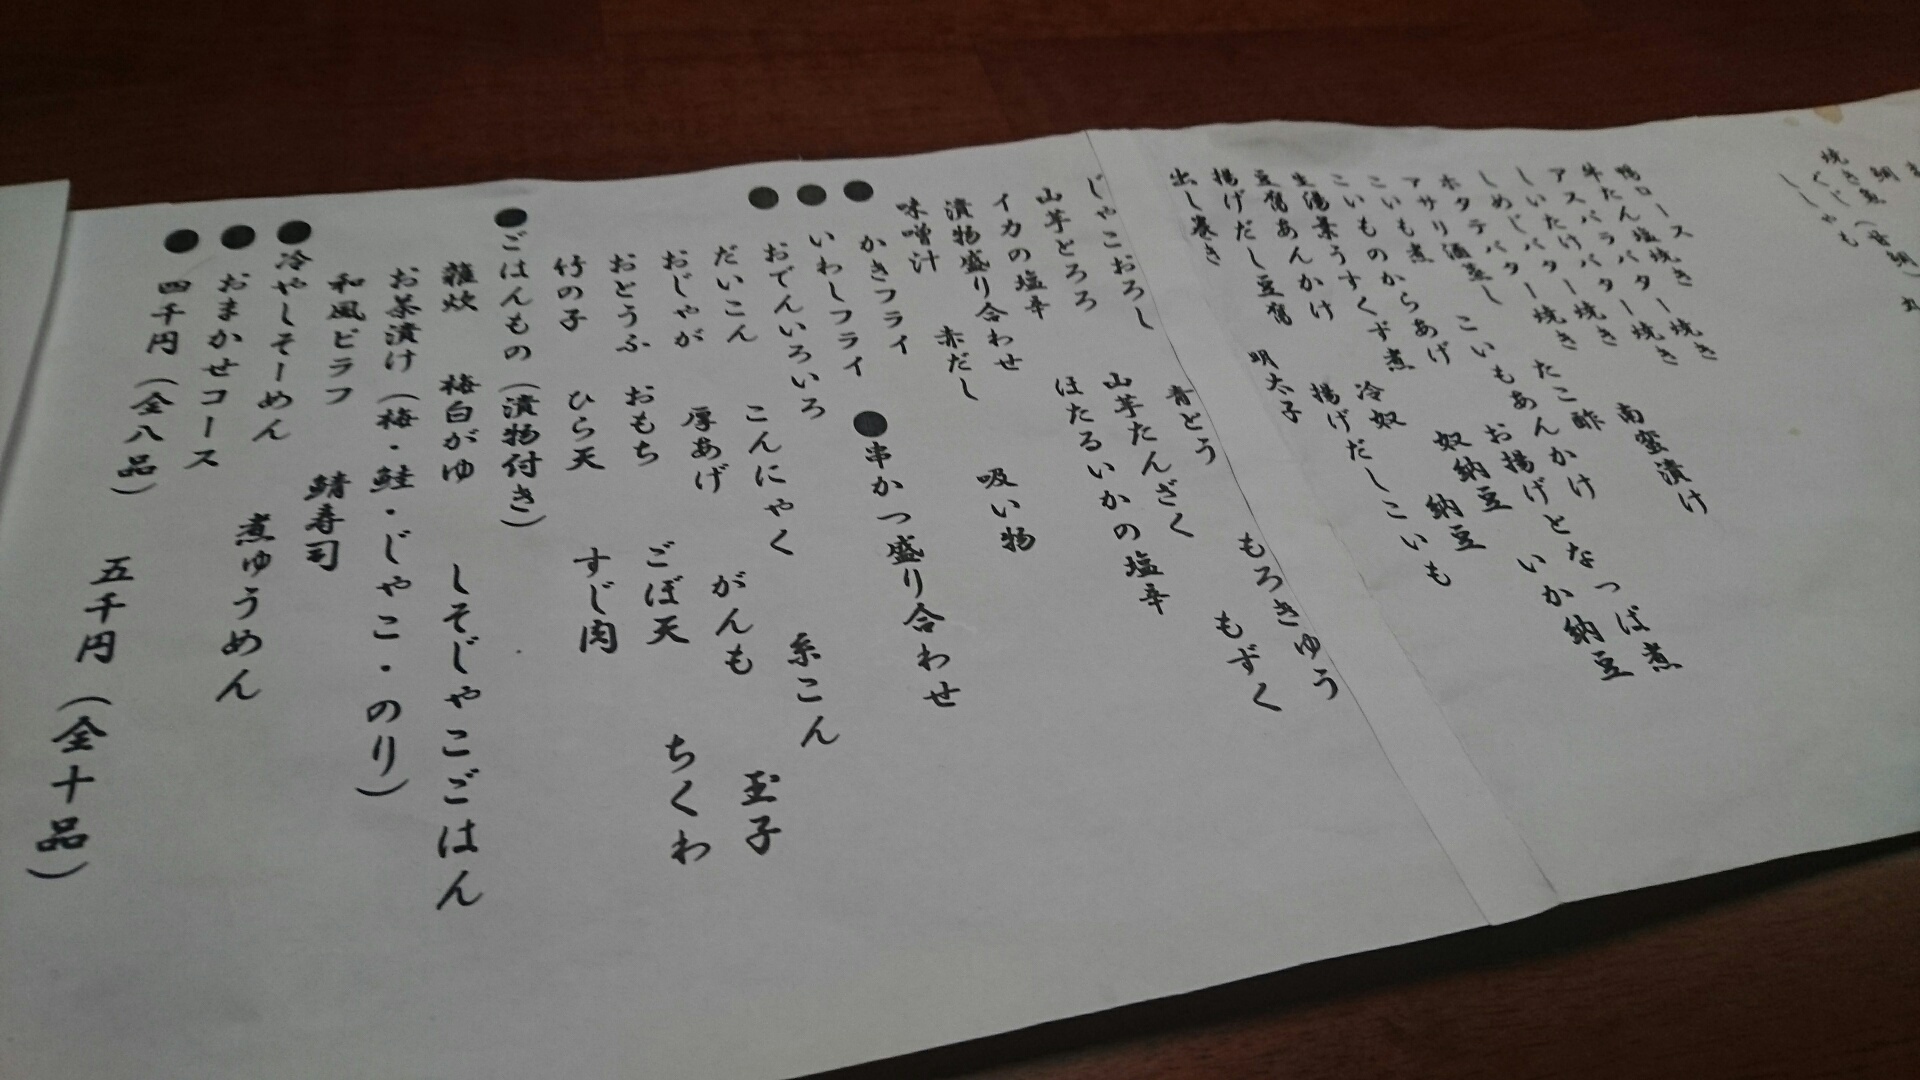 焼きくじ
ししゃも
鴨ロース
牛たん塩焼き
アスパラバター焼き
しいたけバター焼き 南蛮漬け
しめじバター焼き たこ酢
ホタテバター焼き こいもあんかけ
アサリ酒蒸し お揚げとなっぱ煮
こいも煮 奴納豆 いか納豆
こいものからあげ 納豆
生湯葉うすくず煮
豆腐あんかけ 冷奴
揚げだし豆腐 揚げだしこいも
出し巻き 明太子
じゃこおろし 青とう もろきゅう
山芋とろろ 山芋たんざく もずく
イカの塩辛 ほたるいかの塩辛
漬物盛り合わせ
味噌汁 赤だし 吸い物
●かきフライ ●串かつ盛り合わせ
●いわしフライ
●おでんいろいろ
だいこん こんにゃく 糸こん
おじゃが 厚あげ がんも 玉子
おとうふ おもち ごぼ天 ちくわ
竹の子 ひら天 すじ肉
●ごはんもの（漬物付き）
雑炊 梅白がゆ しそじゃこごはん
お茶漬け（梅・鮭・じゃこ・のり）
和風ピラフ 鯖寿司
●冷やしそーめん 煮ゆうめん
●おまかせコース
●四千円（全八品） 五千円（全十品）